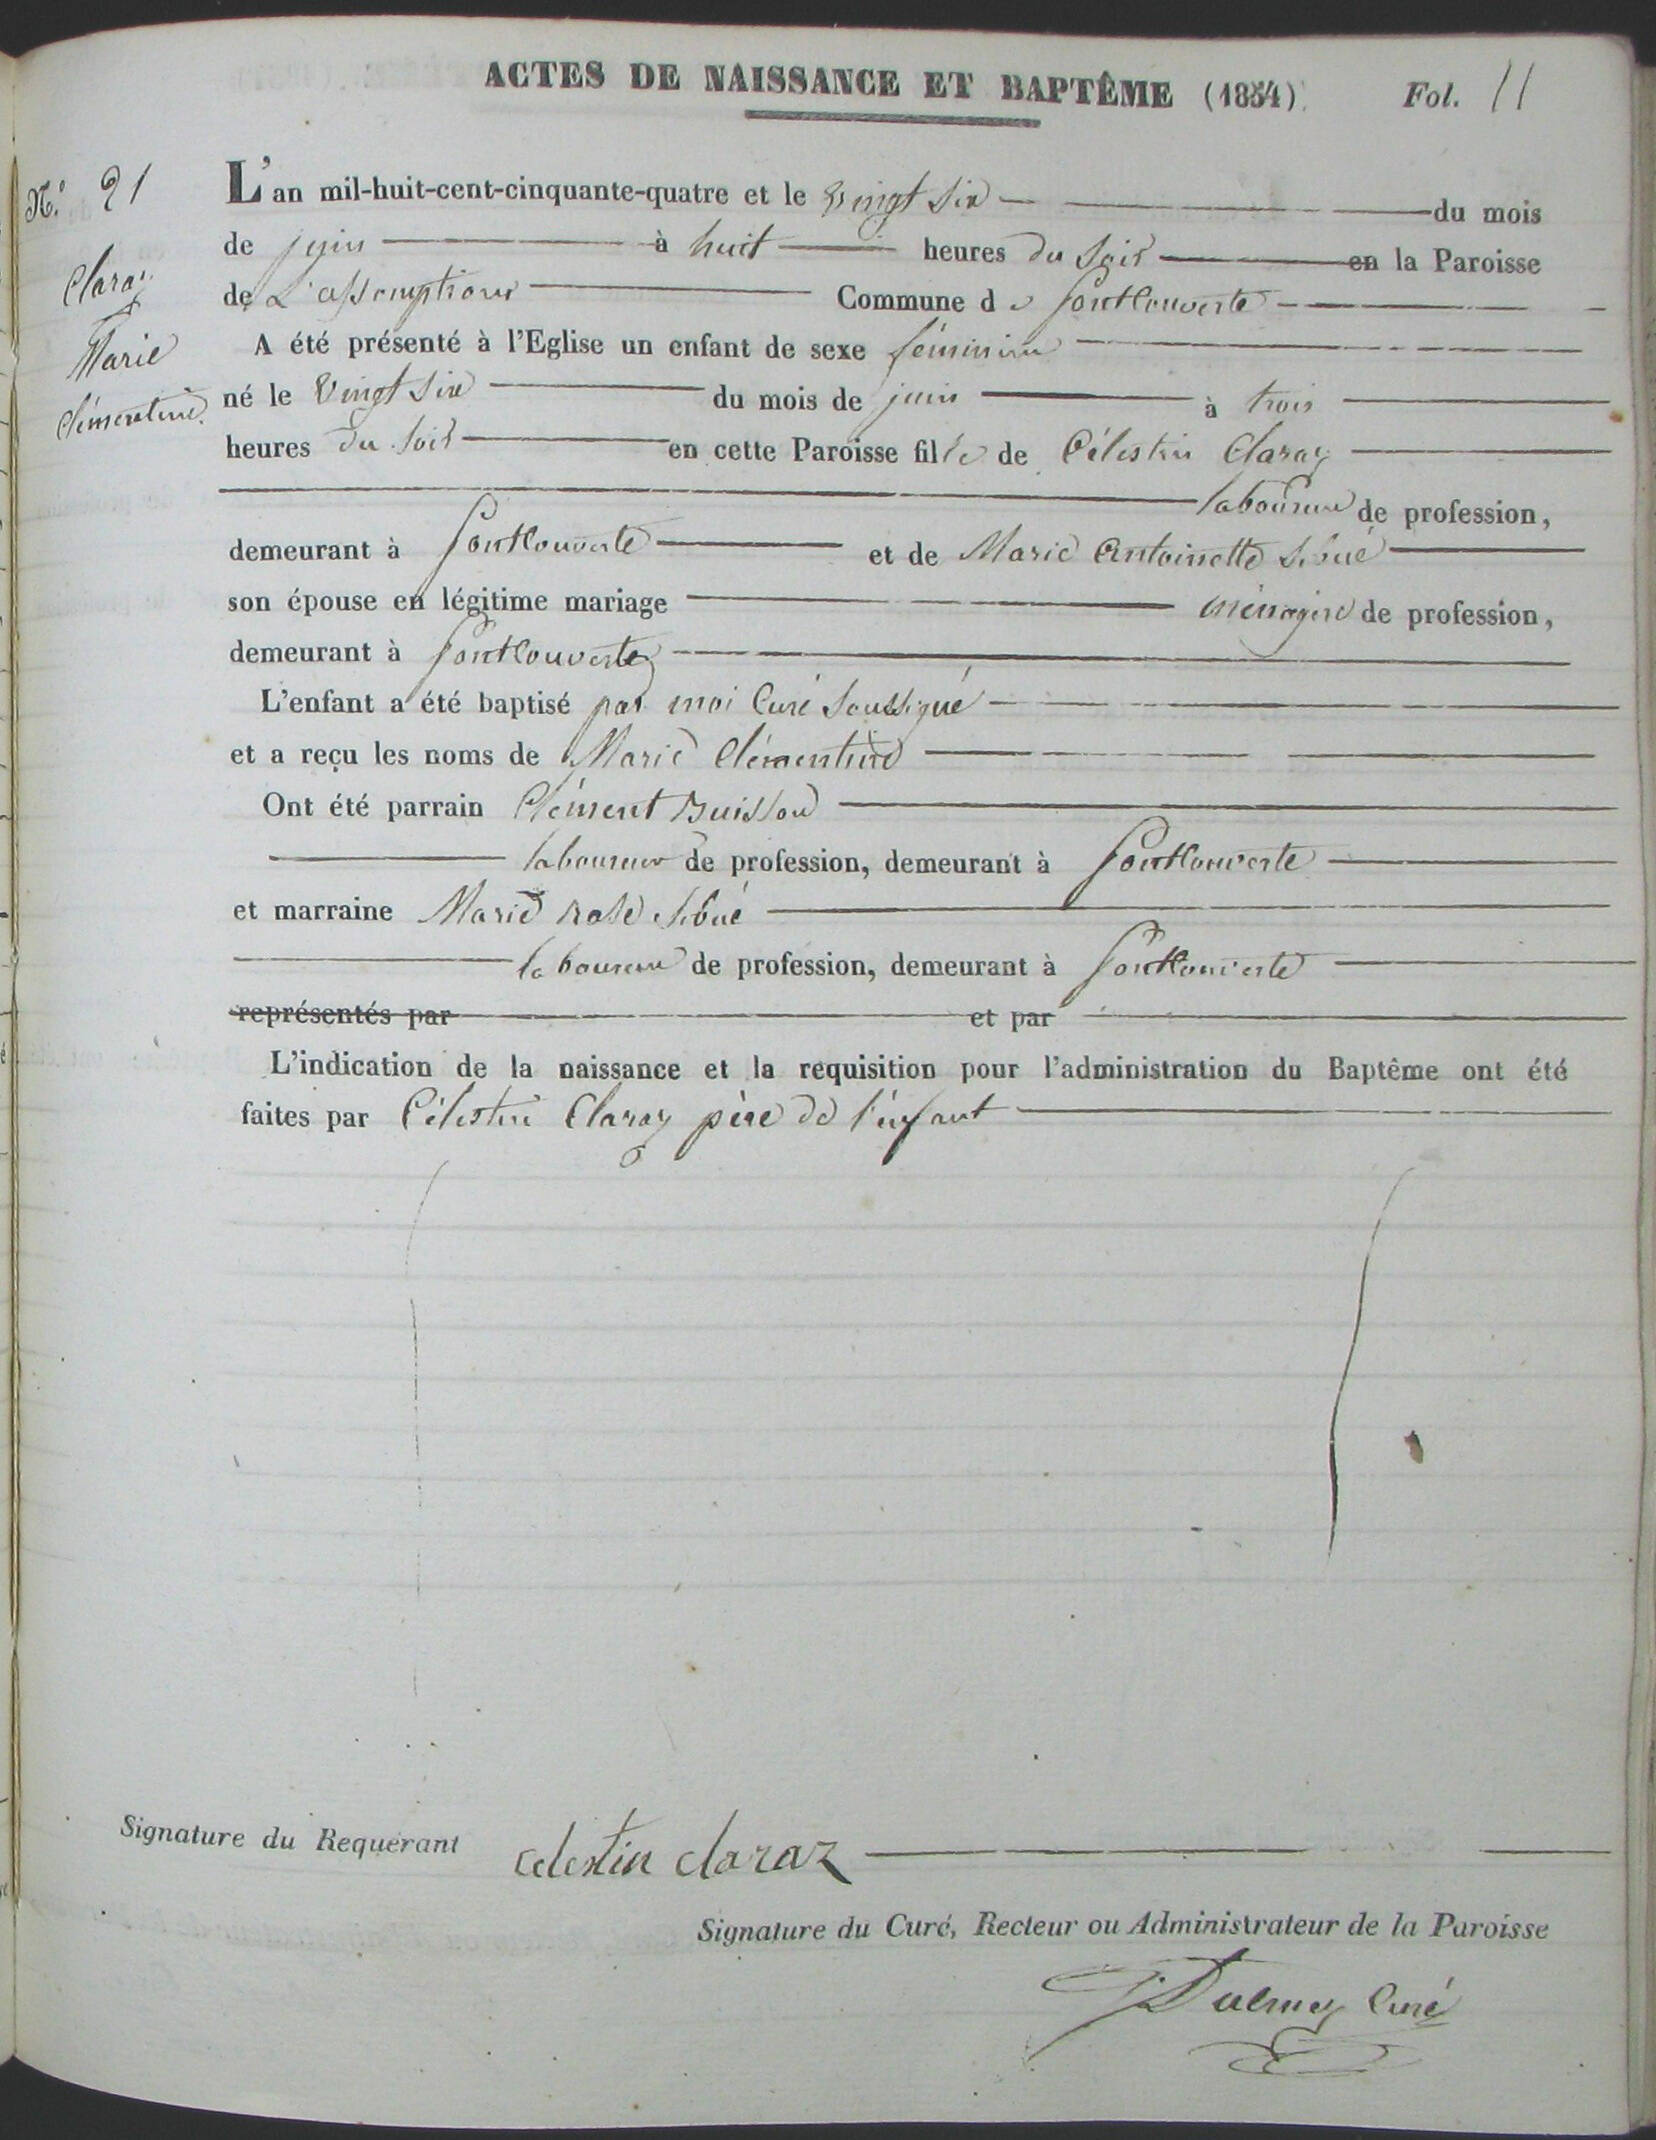 ACTES DE NAISSANCE ET BAPTÊME (1854) Fol. 11
N.° 21
Claraz
Marie
Clémentine.
L'an mil-huit-cent-cinquante-quatre et le vingt six du mois
de juin à huit heures du soir en la Paroisse
de L'assomption Commune de Fontcouverte
A été présenté à l'Eglise un enfant de sexe féminin
né le vingt six du mois de juin à trois
heures du soir en cette Paroisse fille de Célestin Claraz
laboureur de profession,
demeurant à Fontcouverte et de Marie Antoinette Sibué
son épouse en légitime mariage ménagère de profession,
demeurant à Fontcouverte
L'enfant a été baptisé par moi Curé soussigné
et a reçu les noms de Marie Clémentine
Ont été parrain Clément Buisson
laboureur de profession, demeurant à Fontcouverte
et marraine Marie rose Sibué
laboureur de profession, demeurant à Fontcouverte
représentés par et par
L'indication de la naissance et la requisition pour l'administration du Baptême ont été
faites par Célestin Claraz père de l'enfant
Signature du Requérant celestin claraz
Signature du Curé, Recteur ou Administrateur de la Paroisse
Curé